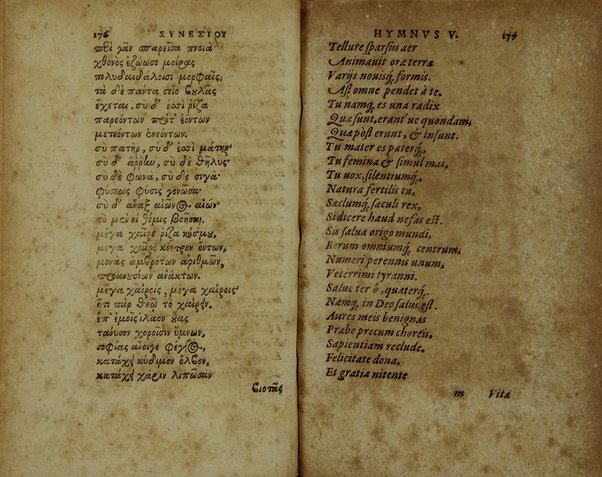 176 ΣΥΝΕΣΙΟΥ
χθονὸς ἐζώωσε μοίρας
πολυδαιδάλοισι μορφαῖς,
τὰ δὲ πάντα σεῖο βουλᾶς
ἔχεται. σὺ δ' ἐσσὶ ῥίζα
παρεόντων πρό τ' ἐόντων
μετεόντων ἐνεόντων.
σὺ πατὴρ, σὺ δ' ἐσσὶ μάτηρ·
σὺ δ' ἄρρην, σὺ δὲ θῆλυς·
σὺ δὲ φωνά, σὺ δὲ σιγά·
φύσεως φύσις γονῶσα·
σὺ δ' ἄναξ αἰῶνος αἰών·
τὸ μὲν εἰ θέμις βοῆσαι.
μέγα χαῖρε ῥίζα κόσμου,
μέγα χαῖρε κέντρον ὄντων,
μονὰς ἀμβρότων ἀριθμῶν,
προανουσίων ἀνάκτων.
μέγα χαίροις, μέγα χαίροις·
ὅτι παρ θεῷ τὸ χαίρειν.
ἐπ' ἐμοῖς ἵλαον οὖας
τάνυσον χοροῖσιν ὕμνων,
σοφίας ἄνοιγε φέγγος,
κατάχει κύδιμον ὄλβον,
κατάχει χάριν λιπῶσαν
βιοτᾶς
HYMNVS V. 177
Tellure sparsus aer
Animauit ora terræ
Varijs nouisq́; formis.
Ast omne pendet à te.
Tu namq́; es una radix
Quæ sunt, erant ue quondam,
Quæ pòst erunt, & insunt.
Tu mater es paterq́;,
Tu femina & simul mas,
Tu uox, silentiumq́;,
Natura fertilis tu,
Sæclumq́; sæculi rex,
Si dicere haud nefas est.
Sis salua origo mundi,
Rerum omniumq́; centrum,
Numeri perennis unum,
Veterrimi tyranni.
Salue ter ô, quaterq́;
Namq́; in Deo salus est.
Aures meis benignas
Præbe precum choreis,
Sapientiam reclude.
Felicitate dona,
Et gratia nitente
m Vitæ